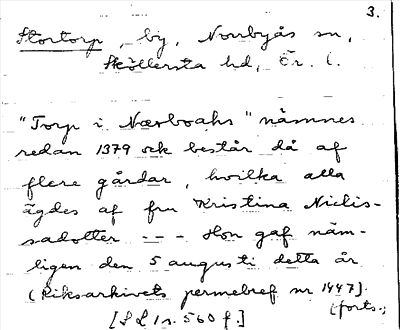 3.
Stortorp, by, Norrbyås sn,
Sköllersta hd, Ör. l.
"Torp i Nærboahs" nämnes
redan 1379 och består då af
flere gårdar, hvilka alla
ägdes af fru Kristina Nielis-
sadotter --- Hon gaf näm-
ligen den 5 augusti detta år
(Riksarkivets permebref nr 1447).
(forts.;
[SL 1 s. 560 f.]